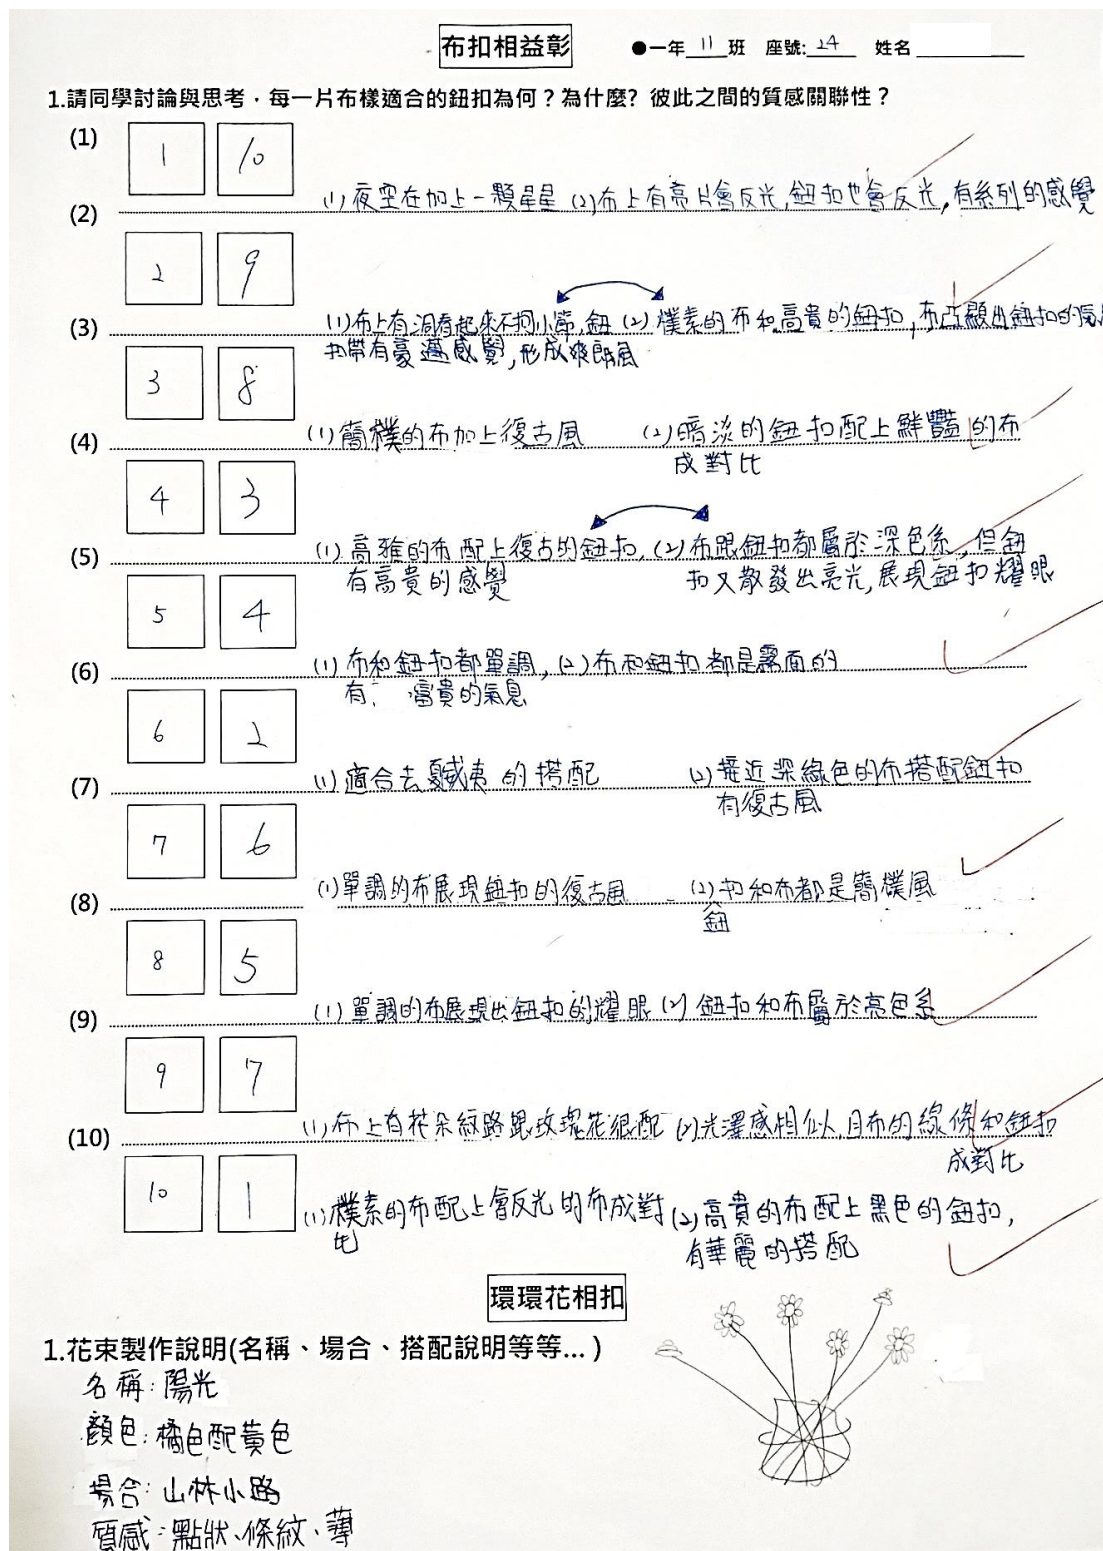 布扣相益彰
●一年 11 班 座號: 24 姓名
1.請同學討論與思考，每一片布樣適合的鈕扣為何？為什麼? 彼此之間的質感關聯性？
(1) 1 10
(1)夜空在加上一顆星星 (2)布上有亮片會反光,鈕扣也會反光,有系列的感覺
(2) 2 9
(1)布上有洞看起來不拘小節,鈕 (2)樸素的布和高貴的鈕扣,布凸顯出鈕扣的氣
扣帶有豪邁感覺,形成爽朗風
(3) 3 8
(1)簡樸的布加上復古風 (2)暗淡的鈕扣配上鮮豔的布
成對比
(4) 4 3
(1)高雅的布配上復古的鈕扣, (2)布跟鈕扣都屬於深色系,但鈕
有高貴的感覺 扣又散發出亮光,展現鈕扣耀眼
(5) 5 4
(1)布和鈕扣都單調, (2)布和鈕扣都是霧面的
有 富貴的氣息
(6) 6 2
(1)適合去夏威夷的搭配 (2)接近深綠色的布搭配鈕扣
有復古風
(7) 7 6
(1)單調的布展現鈕扣的復古風 (2)鈕扣和布都是簡樸風
(8) 8 5
(1)單調的布展現出鈕扣的耀眼 (2)鈕扣和布屬於亮色系
(9) 9 7
(1)布上有花朵紋路跟玫瑰花很配 (2)光澤感相似,且布的線條和鈕扣
成對比
(10) 10 1
(1)樸素的布配上會反光的布成對 (2)高貴的布配上黑色的鈕扣,
比 有華麗的搭配
環環花相扣
1.花束製作說明(名稱、場合、搭配說明等等…)
名稱:陽光
顏色:橘色配黃色
場合:山林小路
質感:點狀、條紋、薄